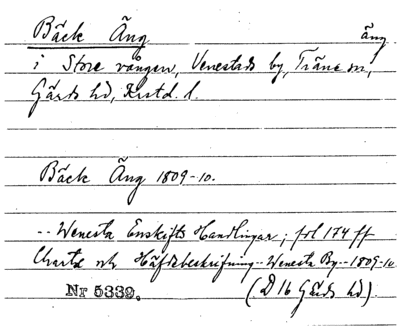 Bäck Äng äng
i Store vången, Venestads by, Träne sn,
Gärds hd, Krstd. l.
Bäck Äng 1809-10.
-- Wenesta Enskifts Handlingar; fol 174 ff
Charta och Häfdebeskrifning -- Wenesta By -- 1809-10
Nr 5339. (D 16 Gärds hd)